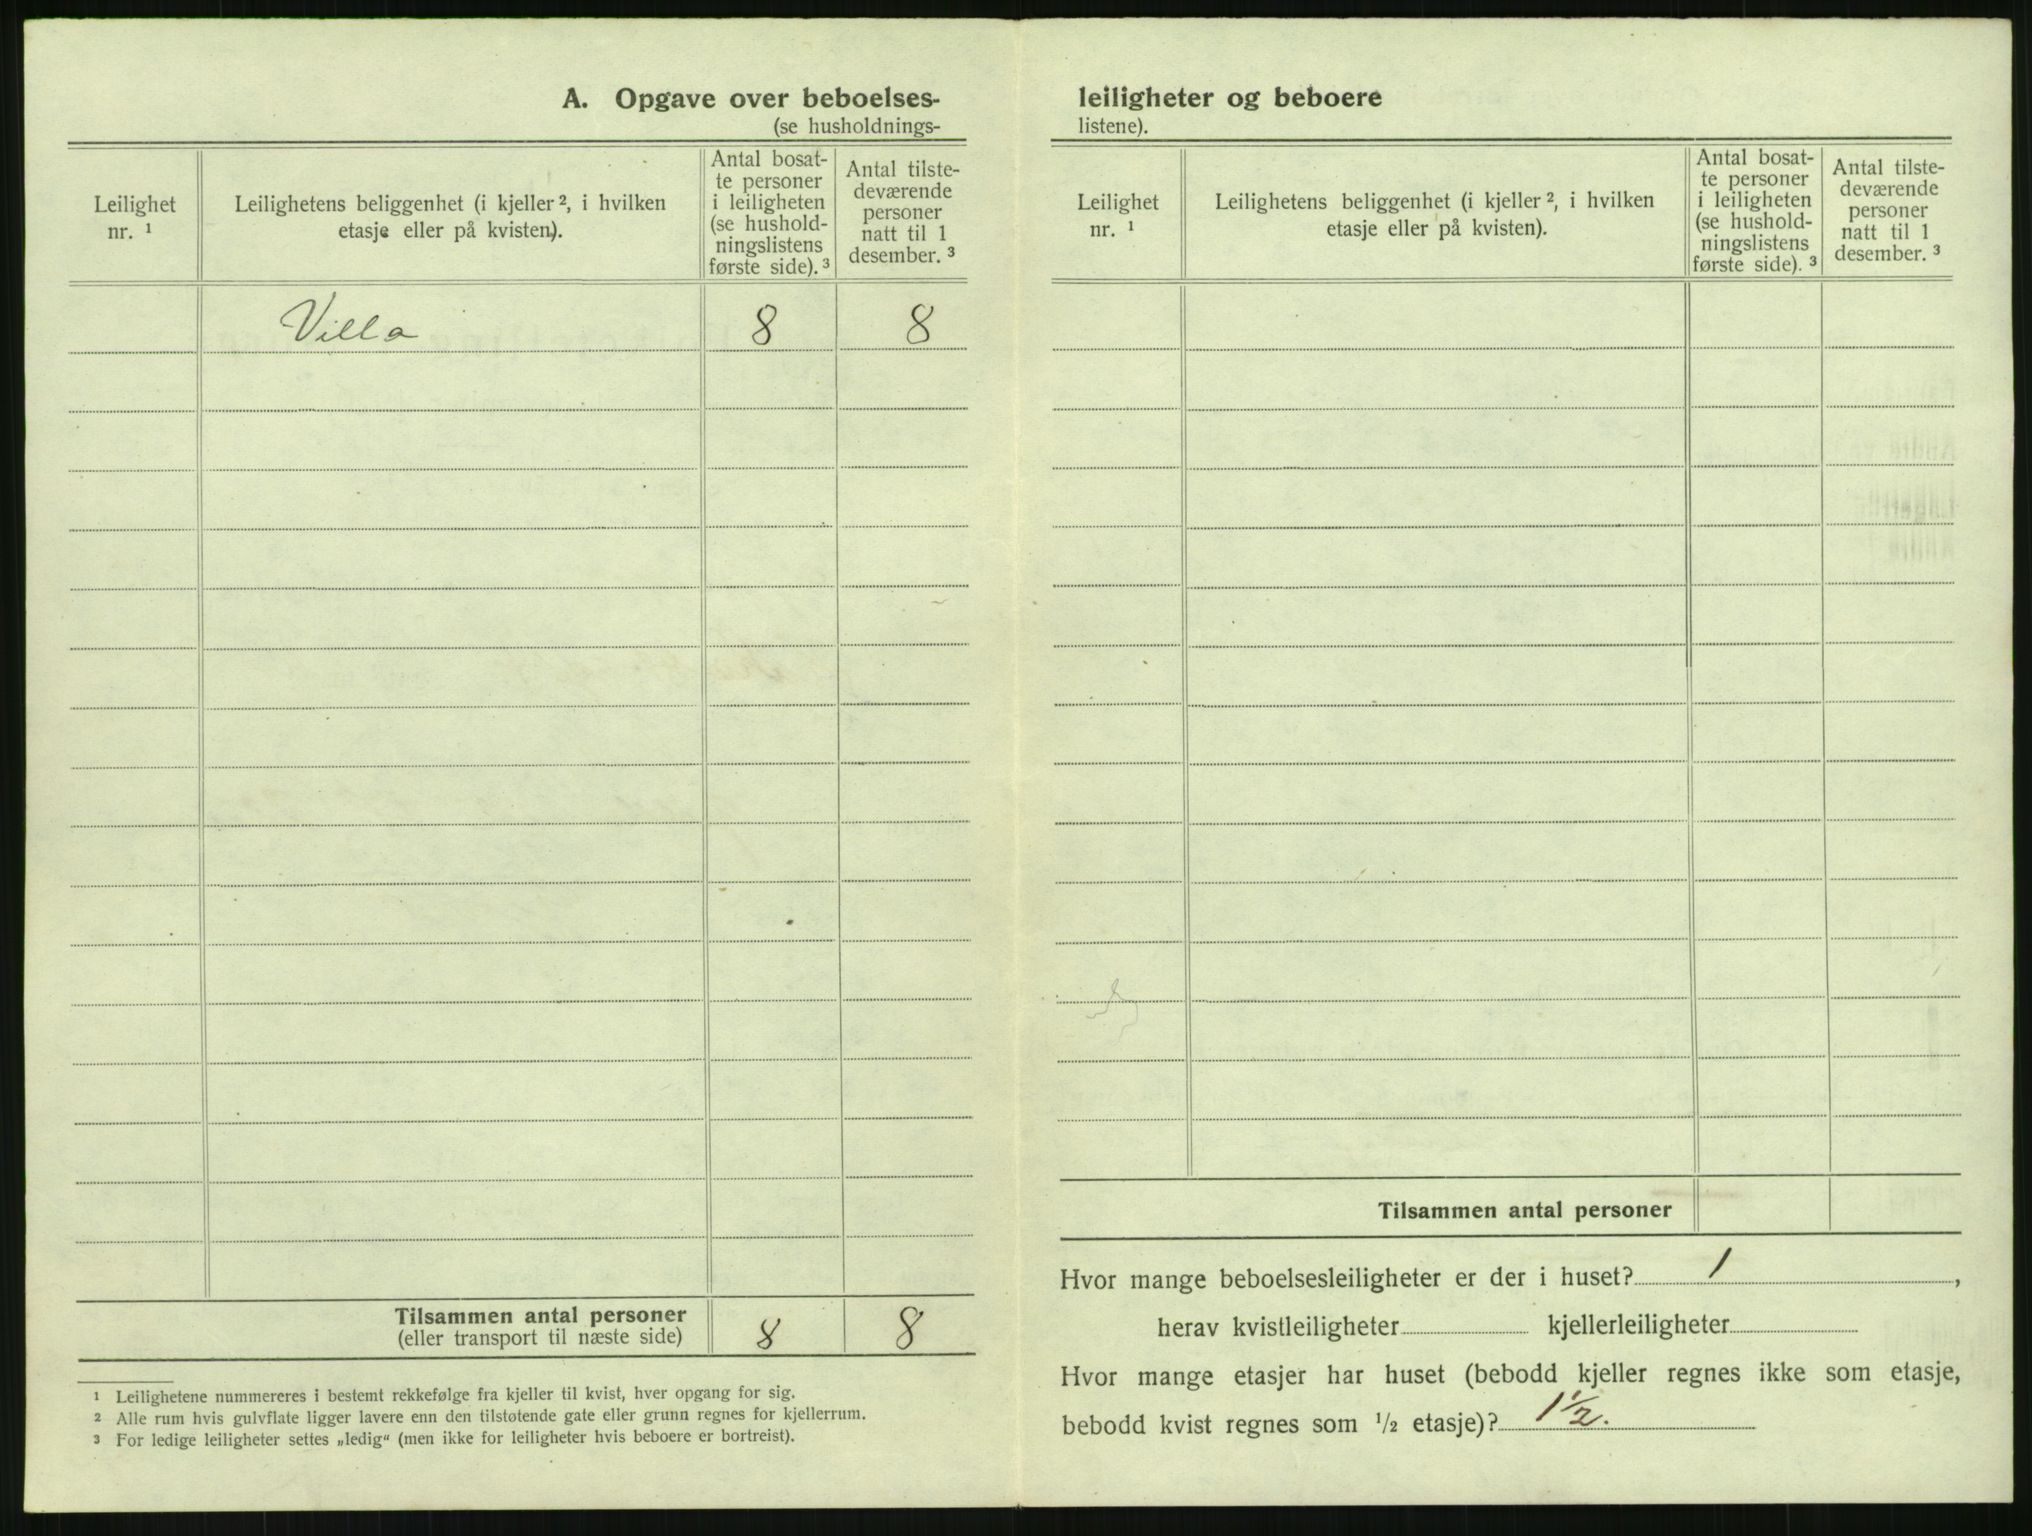 A. Opgave over beboelses-
(se husholdnings-
Leilighet
nr. ¹
Leilighetens beliggenhet (i kjeller ², i hvilken
etasje eller på kvisten).
Antal bosat-
te personer
i leiligheten
(se hushold-
ningslistens
første side). ³
Antal tilste-
deværende
personer
natt til 1
desember. ³
Villa 8 8
Tilsammen antal personer
(eller transport til næste side) 8 8
¹ Leilighetene nummereres i bestemt rekkefølge fra kjeller til kvist, hver opgang for sig.
² Alle rum hvis gulvflate ligger lavere enn den tilstøtende gate eller grunn regnes for kjellerrum.
³ For ledige leiligheter settes „ledig“ (men ikke for leiligheter hvis beboere er bortreist).
leiligheter og beboere
listene).
Leilighet
nr. ¹
Leilighetens beliggenhet (i kjeller ², i hvilken
etasje eller på kvisten).
Antal bosat-
te personer
i leiligheten
(se hushold-
ningslistens
første side). ³
Antal tilste-
deværende
personer
natt til 1
desember. ³
Tilsammen antal personer
Hvor mange beboelsesleiligheter er der i huset? 1 ,
herav kvistleiligheter kjellerleiligheter
Hvor mange etasjer har huset (bebodd kjeller regnes ikke som etasje,
bebodd kvist regnes som ½ etasje)? 1½.